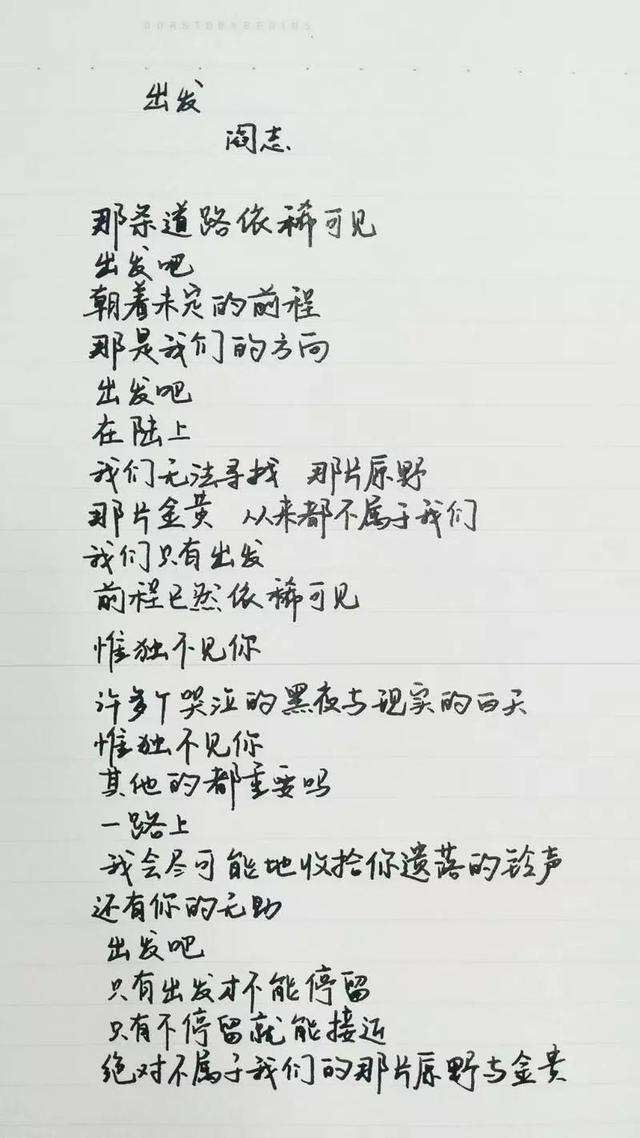 出发
阎志
那条道路依稀可见
出发吧
朝着未定的前程
那是我们的方向
出发吧
在陆上
我们无法寻找 那片原野
那片金黄 从来都不属于我们
我们只有出发
前程已然依稀可见
惟独不见你
许多个哭泣的黑夜与现实的白天
惟独不见你
其他的都重要吗
一路上
我会尽可能地收拾你遗落的铃声
还有你的无助
出发吧
只有出发才不能停留
只有不停留就能接近
绝对不属于我们的那片原野与金黄